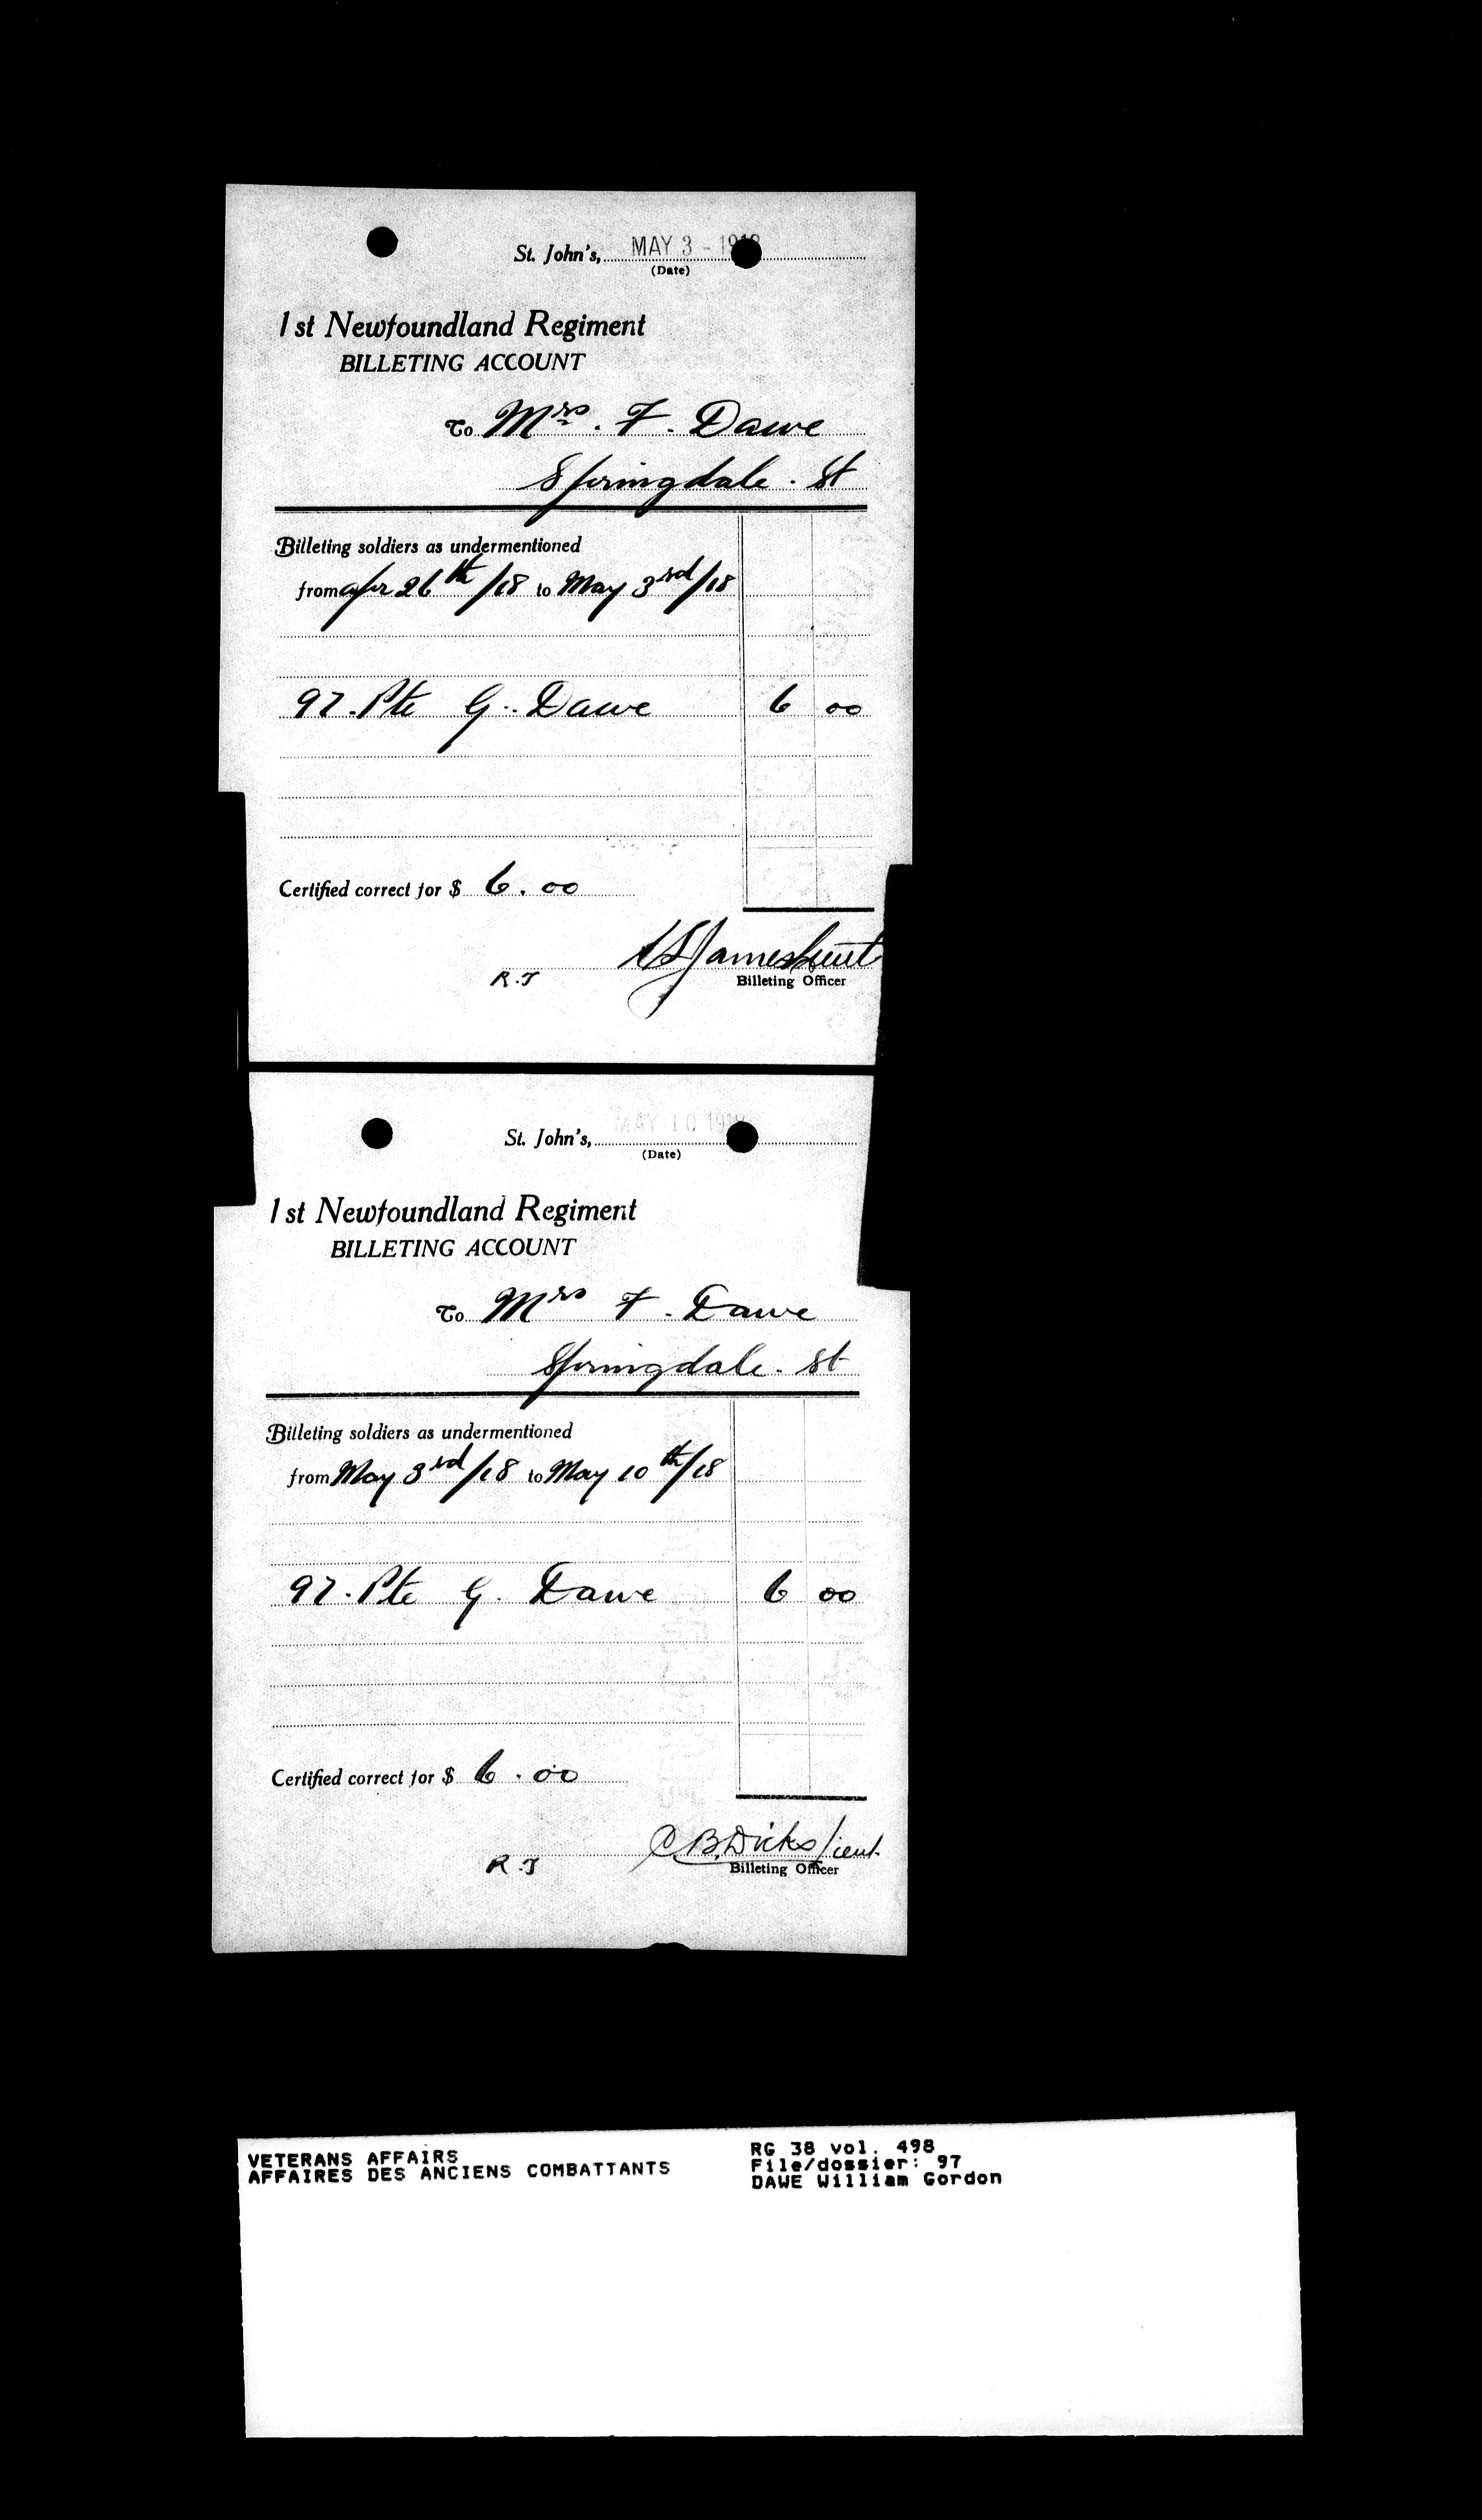 St. John's, MAY 3 - 1918
(Date)
1st Newfoundland Regiment
BILLETING ACCOUNT
To Mrs. F. Dawe
Springdale. St
Billeting soldiers as undermentioned
from Apr 26th/18 to May 3rd/18
97. Pte G. Dawe 6 00
Certified correct for $ 6.00
James Lieut
R.J
Billeting Officer
St. John's, MAY 10 1918
(Date)
1st Newfoundland Regiment
BILLETING ACCOUNT
To Mrs F. Dawe
Springdale. St
Billeting soldiers as undermentioned
from May 3rd/18 to May 10th/18
97. Pte G. Dawe 6 00
Certified correct for $ 6.00
C.B. Dicks Lieut.
R.J
Billeting Officer
VETERANS AFFAIRS
AFFAIRES DES ANCIENS COMBATTANTS
RG 38 vol. 498
File/dossier: 97
DAWE William Gordon